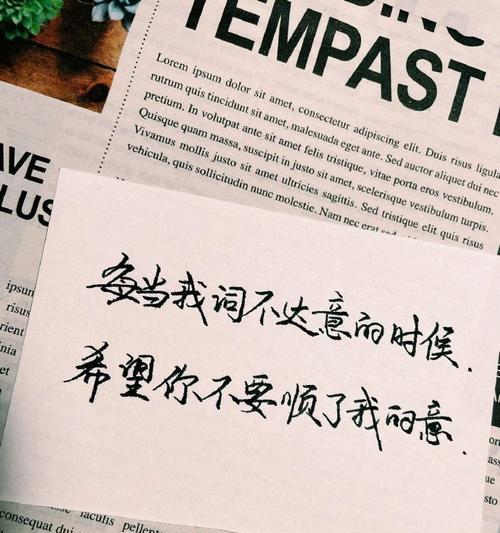 TEMPAST
Lorem ipsum dolor sit amet, consectetur adipiscing elit. Duis risus ligula
rutrum quis tincidunt sit amet, malesuada eget ante. Sed auctor aliquet dui nec
pretium. In volutpat ante sit amet felis tristique, vitae porta eros vestibulum.
Quisque quam massa, suscipit in justo sit amet, scelerisque vestibulum turpis.
Vivamus mollis justo sit amet ultricies sagittis. Sed tristique elit quis risus
vehicula, quis sollicitudin nunc molestie. Nam nec erat
AVE
LUS
ipsum
risus
rient
inia
est
每当我词不达意的时候.
希望你不要顺了我的意.
iaculis pellent
consequat dui